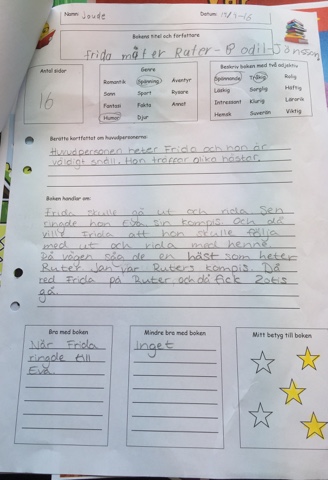 Namn: Joude Datum: 19/4-16
Bokens titel och författare
frida möter Ruter - Bodil-Jönsson
Antal sidor
16
Genre
Romantik Spänning Äventyr
Sann Sport Rysare
Fantasi Fakta Annat
Humor Djur
Beskriv boken med två adjektiv
Spännande Tråkig Rolig
Läskig Sorglig Häftig
Intressant Klurig Lärorik
Hemsk Suverän Viktig
Berätta kortfattat om huvudpersonerna:
Huvudpersonen heter Frida och han är
väldigt snäll. Han träffar olika hästar.
Boken handlar om:
Frida skulle gå ut och rida Sen
ringde han Eva sin kompis och de
ville Frida att hon skulle följa
med ut och rida med henne.
På vägen såg de en häst som heter
Ruter Jan var Ruters kompis. Då
red Frida på Ruter och då fick Zotis
gå.
Bra med boken
När Frida
ringde till
Eva
Mindre bra med boken
Inget
Mitt betyg till boken